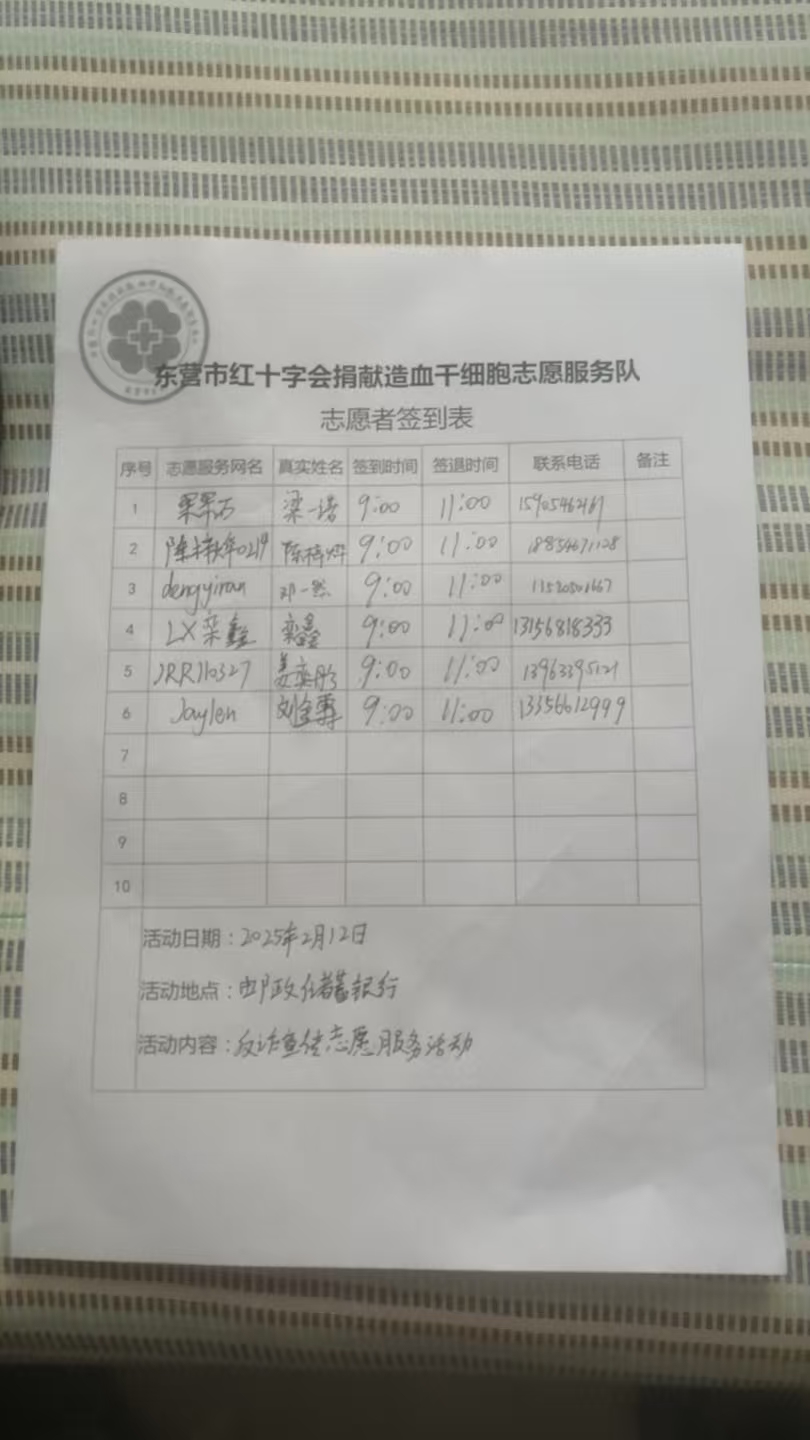 东营市红十字会捐献造血干细胞志愿服务队
志愿者签到表
序号 志愿服务网名 真实姓名 签到时间 签退时间 联系电话 备注
1 果果石 梁一诺 9:00 11:00
2 9:00 11:00 18854671128
3 dengyiran 邓一然 9:00 11:00
4 LX栾鑫 栾鑫 9:00 11:00 13156818333
5 JRR110327 9:00 11:00 13963395121
6 Jaylen 9:00 11:00 13356612999
7
8
9
10
活动日期：2025年2月12日
活动地点：邮政储蓄银行
活动内容：反诈宣传志愿服务活动